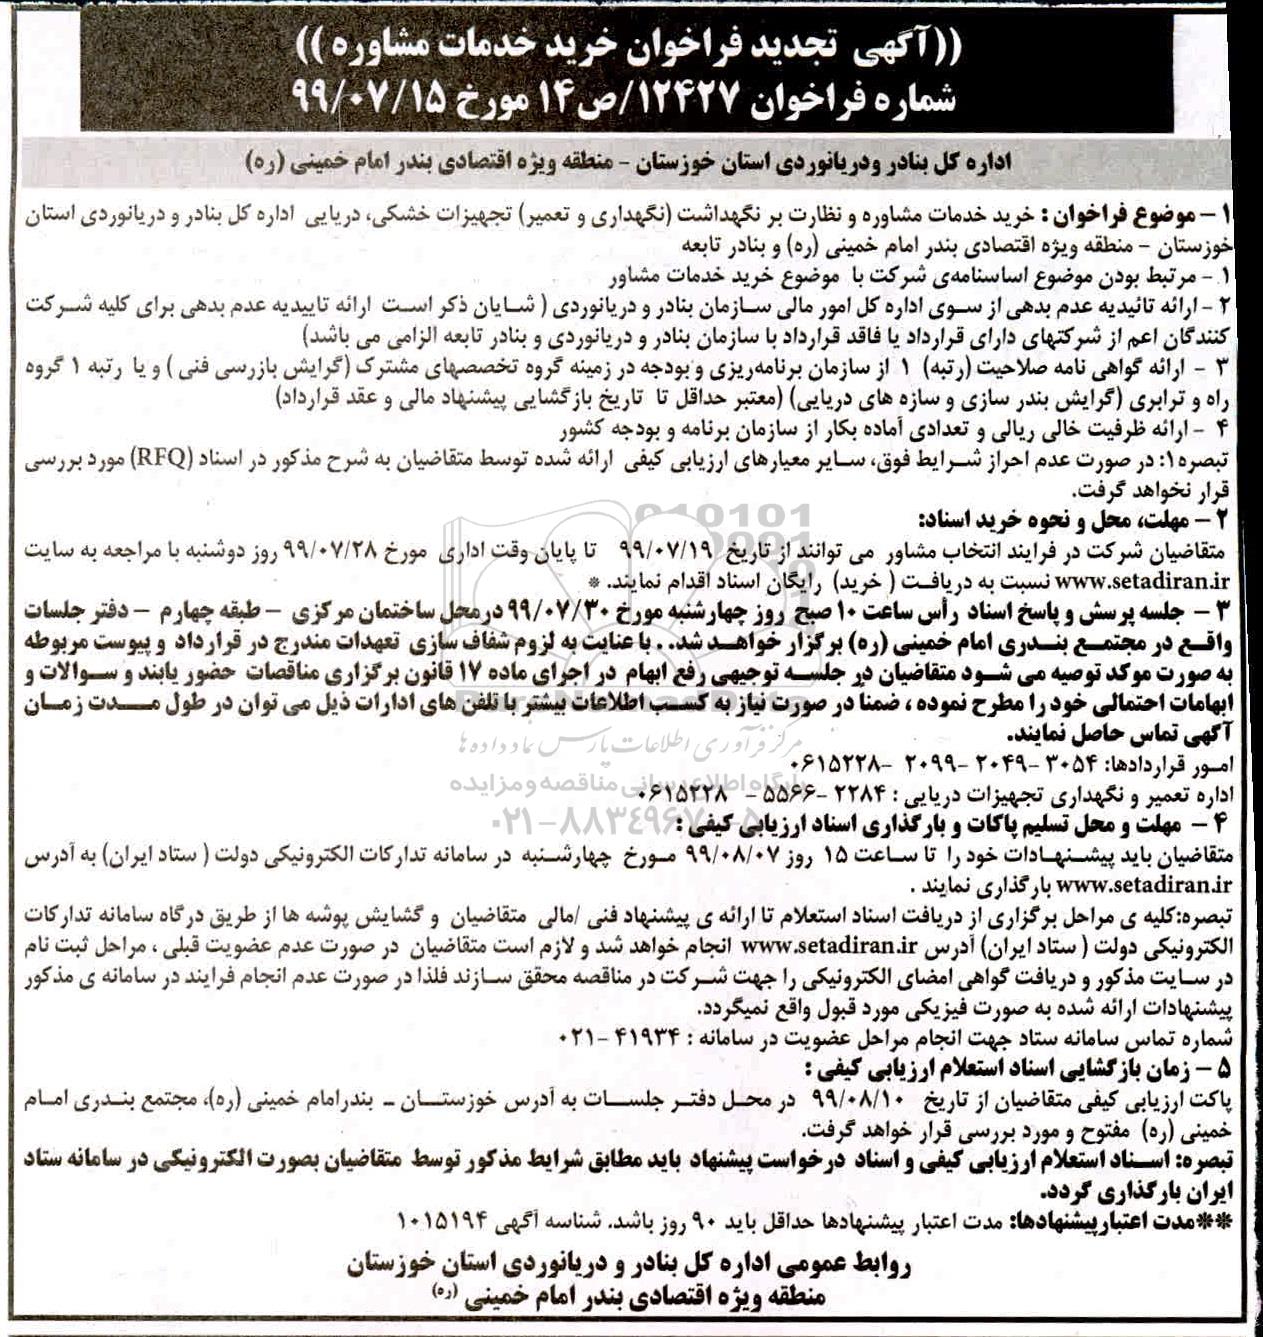 ((آگهی تجدید فراخوان خرید خدمات مشاوره ))
شماره فراخوان ۱۲۴۲۷/ص۱۴ مورخ ۹۹/۰۷/۱۵
اداره کل بنادر ودریانوردی استان خوزستان - منطقه ویژه اقتصادی بندر امام خمینی (ره)
۱ - موضوع فراخوان : خرید خدمات مشاوره و نظارت بر نگهداشت (نگهداری و تعمیر) تجهیزات خشکی، دریایی اداره کل بنادر و دریانوردی استان
خوزستان - منطقه ویژه اقتصادی بندر امام خمینی (ره) و بنادر تابعه
۱ - مرتبط بودن موضوع اساسنامه‌ی شرکت با موضوع خرید خدمات مشاور
۲ - ارائه تائیدیه عدم بدهی از سوی اداره کل امور مالی سازمان بنادر و دریانوردی ( شایان ذکر است ارائه تاییدیه عدم بدهی برای کلیه شرکت
کنندگان اعم از شرکتهای دارای قرارداد یا فاقد قرارداد با سازمان بنادر و دریانوردی و بنادر تابعه الزامی می باشد)
۳ - ارائه گواهی نامه صلاحیت (رتبه) ۱ از سازمان برنامه‌ریزی و بودجه در زمینه گروه تخصصهای مشترک (گرایش بازرسی فنی ) و یا رتبه ۱ گروه
راه و ترابری (گرایش بندر سازی و سازه های دریایی) (معتبر حداقل تا تاریخ بازگشایی پیشنهاد مالی و عقد قرارداد)
۴ - ارائه ظرفیت خالی ریالی و تعدادی آماده بکار از سازمان برنامه و بودجه کشور
تبصره۱: در صورت عدم احراز شرایط فوق، سایر معیارهای ارزیابی کیفی ارائه شده توسط متقاضیان به شرح مذکور در اسناد (RFQ) مورد بررسی
قرار نخواهد گرفت.
۲ - مهلت، محل و نحوه خرید اسناد:
متقاضیان شرکت در فرایند انتخاب مشاور می توانند از تاریخ ۹۹/۰۷/۱۹ تا پایان وقت اداری مورخ ۹۹/۰۷/۲۸ روز دوشنبه با مراجعه به سایت
www.setadiran.ir نسبت به دریافت ( خرید) رایگان اسناد اقدام نمایند. *
۳ - جلسه پرسش و پاسخ اسناد رأس ساعت ۱۰ صبح روز چهارشنبه مورخ ۹۹/۰۷/۳۰ درمحل ساختمان مرکزی - طبقه چهارم - دفتر جلسات
واقع در مجتمع بندری امام خمینی (ره) برگزار خواهد شد. . با عنایت به لزوم شفاف سازی تعهدات مندرج در قرارداد و پیوست مربوطه
به صورت موکد توصیه می شود متقاضیان در جلسه توجیهی رفع ابهام در اجرای ماده ۱۷ قانون برگزاری مناقصات حضور یابند و سوالات و
ابهامات احتمالی خود را مطرح نموده ، ضمنا در صورت نیاز به کسب اطلاعات بیشتر با تلفن های ادارات ذیل می توان در طول مدت زمان
آگهی تماس حاصل نمایند.
مرکز فرآوری اطلاعات پارس نماد داده ها
امور قراردادها: ۳۰۵۴ -۲۰۴۹ -۲۰۹۹ -۰۶۱۵۲۲۸
پایگاه اطلاع رسانی مناقصه و مزایده
اداره تعمیر و نگهداری تجهیزات دریایی : ۲۲۸۴ -۵۵۶۶ - ۰۶۱۵۲۲۸
۰۲۱-۸۸۳۴۹۶۷۰-۵
۴ - مهلت و محل تسلیم پاکات و بارگذاری اسناد ارزیابی کیفی :
متقاضیان باید پیشنهادات خود را تا ساعت ۱۵ روز ۹۹/۰۸/۰۷ مورخ چهارشنبه در سامانه تدارکات الکترونیکی دولت ( ستاد ایران) به آدرس
www.setadiran.ir بارگذاری نمایند .
تبصره:کلیه ی مراحل برگزاری از دریافت اسناد استعلام تا ارائه ی پیشنهاد فنی /مالی متقاضیان و گشایش پوشه ها از طریق درگاه سامانه تدارکات
الکترونیکی دولت ( ستاد ایران) آدرس www.setadiran.ir انجام خواهد شد و لازم است متقاضیان در صورت عدم عضویت قبلی ، مراحل ثبت نام
در سایت مذکور و دریافت گواهی امضای الکترونیکی را جهت شرکت در مناقصه محقق سازند فلذا در صورت عدم انجام فرایند در سامانه ی مذکور
پیشنهادات ارائه شده به صورت فیزیکی مورد قبول واقع نمیگردد.
شماره تماس سامانه ستاد جهت انجام مراحل عضویت در سامانه : ۴۱۹۳۴ -۰۲۱
۵ - زمان بازگشایی اسناد استعلام ارزیابی کیفی :
پاکت ارزیابی کیفی متقاضیان از تاریخ ۹۹/۰۸/۱۰ در محل دفتر جلسات به آدرس خوزستان - بندرامام خمینی (ره)، مجتمع بندری امام
خمینی (ره) مفتوح و مورد بررسی قرار خواهد گرفت.
تبصره: اسناد استعلام ارزیابی کیفی و اسناد درخواست پیشنهاد باید مطابق شرایط مذکور توسط متقاضیان بصورت الکترونیکی در سامانه ستاد
ایران بارگذاری گردد.
**مدت اعتبارپیشنهادها: مدت اعتبار پیشنهادها حداقل باید ۹۰ روز باشد. شناسه آگهی ۱۰۱۵۱۹۴
روابط عمومی اداره کل بنادر و دریانوردی استان خوزستان
منطقه ویژه اقتصادی بندر امام خمینی (ره)